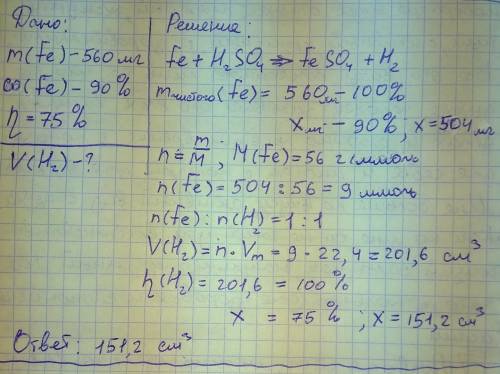 Дано:
m(fe) - 560 мг
ω(fe) - 90%
η = 75%
V(H₂) - ?
Решение:
fe + H₂SO₄ ⇒ feSO₄ + H₂
m чистого (fe) = 560 мг - 100%
x мг - 90% ; x = 504 мг
n = m/M ; M(fe) = 56 г/ммоль
n(fe) = 504 : 56 = 9 ммоль
n(fe) : n(H₂) = 1 : 1
V(H₂) = n · Vm = 9 · 22,4 = 201,6 см³
η(H₂) = 201,6 = 100%
x = 75% ; x = 151,2 см³
Ответ: 151,2 см³